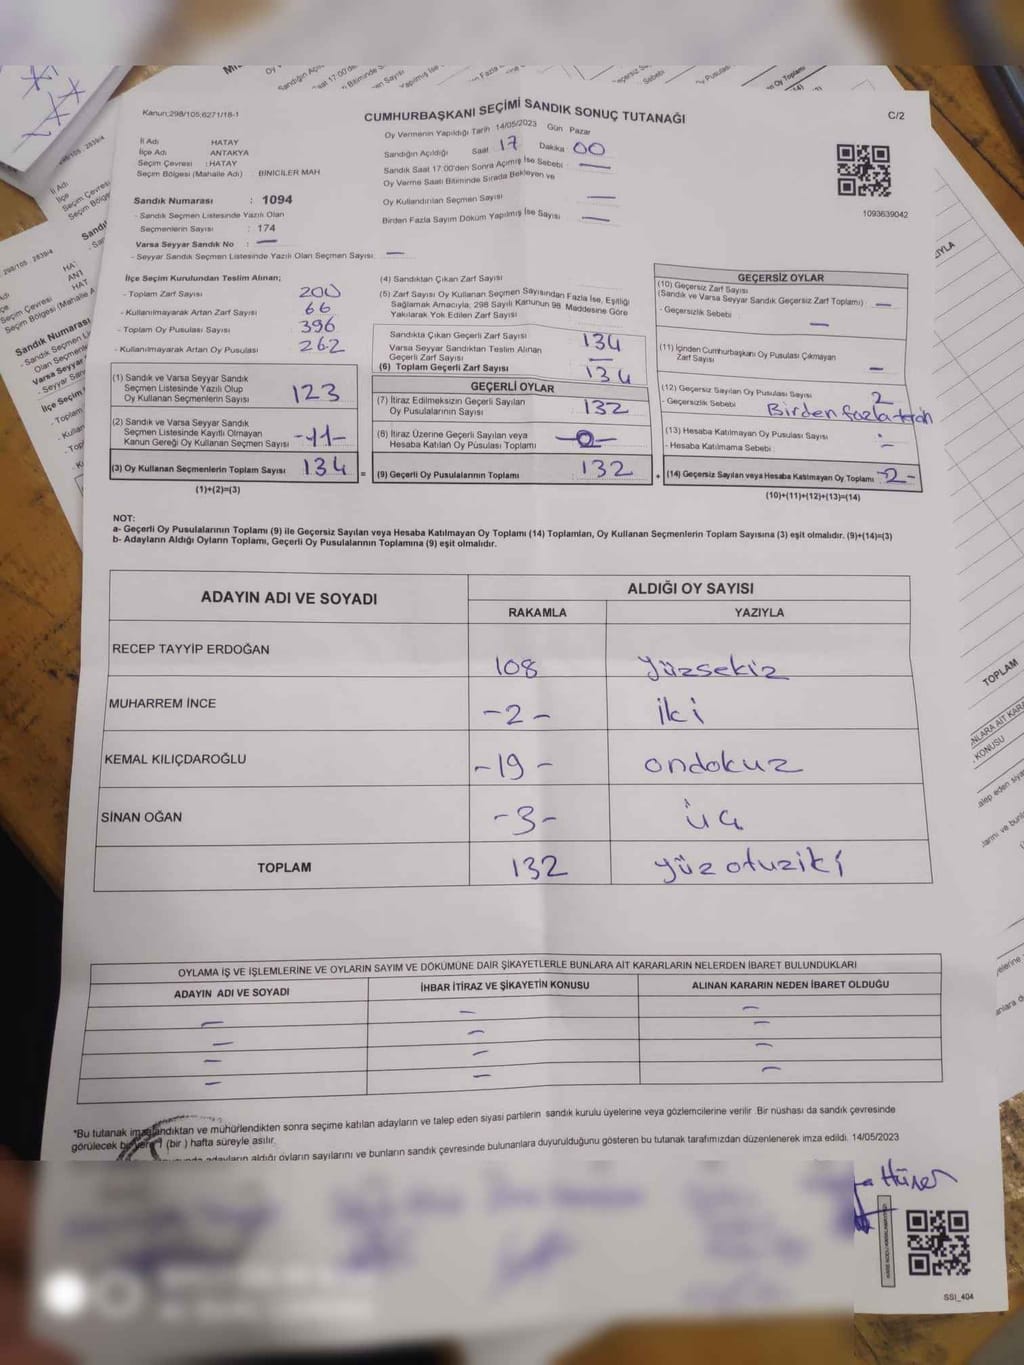 CUMHURBAŞKANI SEÇİMİ SANDIK SONUÇ TUTANAĞI
Kanun;298/105;6271/18-1
C/2
Oy Vermenin Yapıldığı Tarih 14/05/2023 Gün Pazar
İl Adı HATAY
İlçe Adı ANTAKYA
Seçim Çevresi : HATAY
Seçim Bölgesi (Mahalle Adı) BİNİCİLER MAH
Sandığın Açıldığı Saat 17 Dakika 00
Sandık Saat 17:00'den Sonra Açımış İse Sebebi —
Oy Verme Saati Bitiminde Sırada Bekleyen ve
Oy Kullandırılan Seçmen Sayısı —
Birden Fazla Sayım Döküm Yapılmış İse Sayısı —
1093639042
Sandık Numarası : 1094
- Sandık Seçmen Listesinde Yazılı Olan
Seçmenlerin Sayısı : 174
Varsa Seyyar Sandık No : —
- Seyyar Sandık Seçmen Listesinde Yazılı Olan Seçmen Sayısı: —
İlçe Seçim Kurulundan Teslim Alınan;
- Toplam Zarf Sayısı 200
- Kullanılmayarak Artan Zarf Sayısı 66
- Toplam Oy Pusulası Sayısı 396
- Kullanılmayarak Artan Oy Pusulası 262
(1) Sandık ve Varsa Seyyar Sandık
Seçmen Listesinde Yazılı Olup
Oy Kullanan Seçmenlerin Sayısı 123
(2) Sandık ve Varsa Seyyar Sandık
Seçmen Listesinde Kayıtlı Olmayan
Kanun Gereği Oy Kullanan Seçmen Sayısı -11-
(3) Oy Kullanan Seçmenlerin Toplam Sayısı 134 =
(1)+(2)=(3)
(4) Sandıktan Çıkan Zarf Sayısı
(5) Zarf Sayısı Oy Kullanan Seçmen Sayısından Fazla İse, Eşitliği
Sağlamak Amacıyla, 298 Sayılı Kanunun 98. Maddesine Göre
Yakılarak Yok Edilen Zarf Sayısı
Sandıkta Çıkan Geçerli Zarf Sayısı 134
Varsa Seyyar Sandıktan Teslim Alınan
Geçerli Zarf Sayısı —
(6) Toplam Geçerli Zarf Sayısı 134
GEÇERLİ OYLAR
(7) İtiraz Edilmeksizin Geçerli Sayılan
Oy Pusulalarının Sayısı 132
(8) İtiraz Üzerine Geçerli Sayılan veya
Hesaba Katılan Oy Pusulası Toplamı -0-
(9) Geçerli Oy Pusulalarının Toplamı 132 +
GEÇERSİZ OYLAR
(10) Geçersiz Zarf Sayısı
(Sandık ve Varsa Seyyar Sandık Geçersiz Zarf Toplamı) —
- Geçersizlik Sebebi : —
(11) İçinden Cumhurbaşkanı Oy Pusulası Çıkmayan
Zarf Sayısı —
(12) Geçersiz Sayılan Oy Pusulası Sayısı 2
- Geçersizlik Sebebi Birden fazla tercih
(13) Hesaba Katılmayan Oy Pusulası Sayısı
- Hesaba Katılmama Sebebi : —
(14) Geçersiz Sayılan veya Hesaba Katılmayan Oy Toplamı -2-
(10)+(11)+(12)+(13)=(14)
NOT:
a- Geçerli Oy Pusulalarının Toplamı (9) ile Geçersiz Sayılan veya Hesaba Katılmayan Oy Toplamı (14) Toplamları, Oy Kullanan Seçmenlerin Toplam Sayısına (3) eşit olmalıdır. (9)+(14)=(3)
b- Adayların Aldığı Oyların Toplamı, Geçerli Oy Pusulalarının Toplamına (9) eşit olmalıdır.
ADAYIN ADI VE SOYADI ALDIĞI OY SAYISI
RAKAMLA YAZIYLA
RECEP TAYYİP ERDOĞAN 108 yüzsekiz
MUHARREM İNCE -2- iki
KEMAL KILIÇDAROĞLU -19- ondokuz
SİNAN OĞAN -3- üç
TOPLAM 132 yüz otuziki
OYLAMA İŞ VE İŞLEMLERİNE VE OYLARIN SAYIM VE DÖKÜMÜNE DAİR ŞİKAYETLERLE BUNLARA AİT KARARLARIN NELERDEN İBARET BULUNDUKLARI
ADAYIN ADI VE SOYADI İHBAR İTİRAZ VE ŞİKAYETİN KONUSU ALINAN KARARIN NEDEN İBARET OLDUĞU
— — —
— — —
— — —
— — —
*Bu tutanak imzalandıktan ve mühürlendikten sonra seçime katılan adayların ve talep eden siyasi partilerin sandık kurulu üyelerine veya gözlemcilerine verilir .Bir nüshası da sandık çevresinde
görülecek bir yere 1 (bir ) hafta süreyle asılır.
adayların aldığı oyların sayılarını ve bunların sandık çevresinde bulunanlara duyurulduğunu gösteren bu tutanak tarafımızdan düzenlenerek imza edildi. 14/05/2023
SSI_404